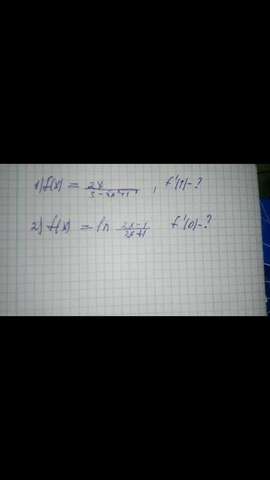 1) f(x) = 2x / , f'(1)-?
2) f(x) = ln (2x-1)/(2x+1) f'(0)-?